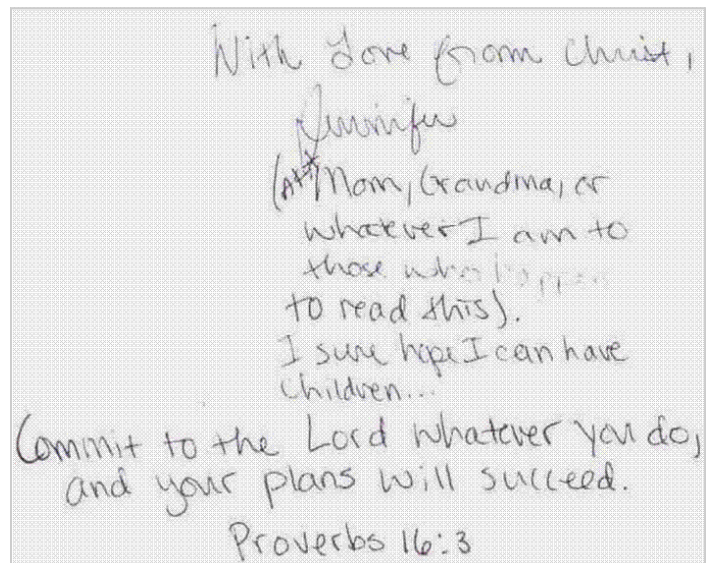 With Love from Christ,
Jennifer
Mom, Grandma, or
whatever I am to
those who happen
to read this).
I sure hope I can have
Children...
Commit to the Lord whatever you do,
and your plans will succeed.
Proverbs 16:3